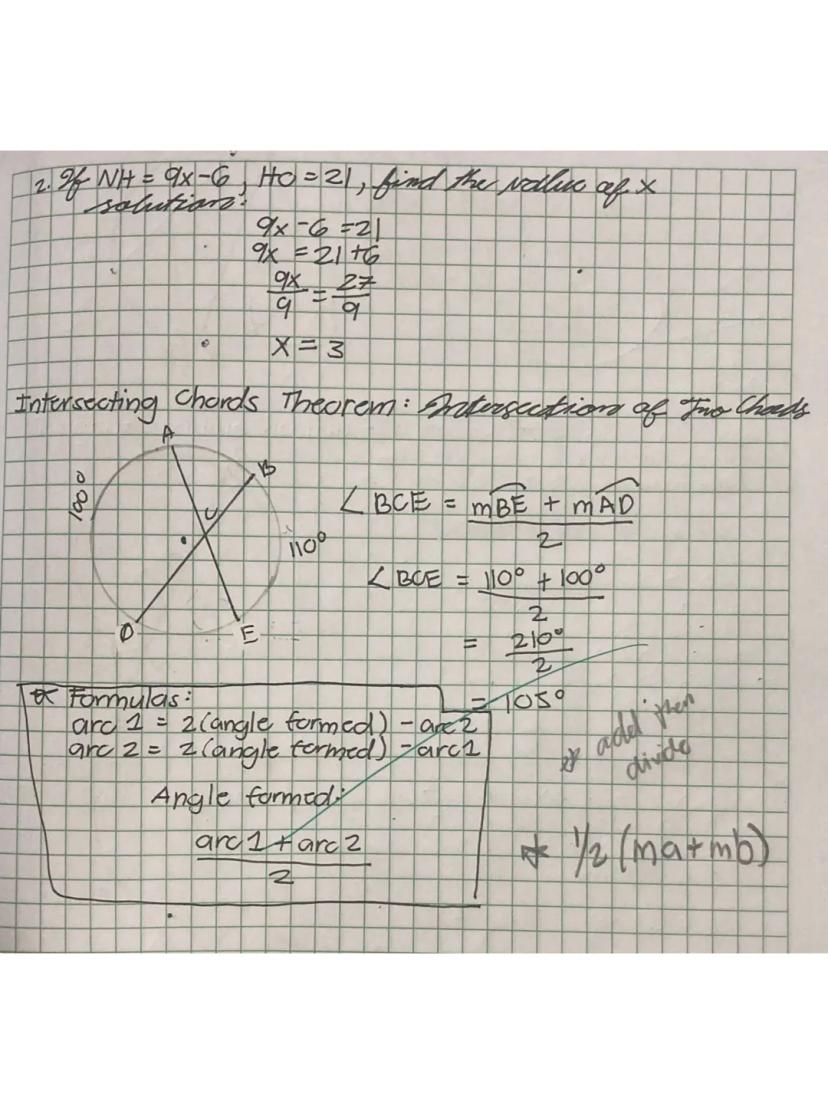 2. If NH = 9x-6, HO = 21, find the value of x
solution:
9x - 6 = 21
9x = 21+6
9x/9 = 27/9
x = 3
Intersecting Chords Theorem: Intersection of Two Chords
A
B
100°
C
110°
D
E
∠BCE = mBE + mAD / 2
∠BCE = 110° + 100° / 2
= 210° / 2
= 105°
* Formulas:
arc 1 = 2(angle formed) - arc 2
arc 2 = 2(angle formed) - arc 1
Angle formed:
arc 1 + arc 2 / 2
* add then
divide
* 1/2 (ma+mb)